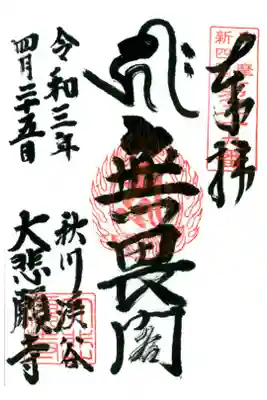 奉拝
無畏閣
令和三年
四月二十五日
秋川渓谷
大悲願寺